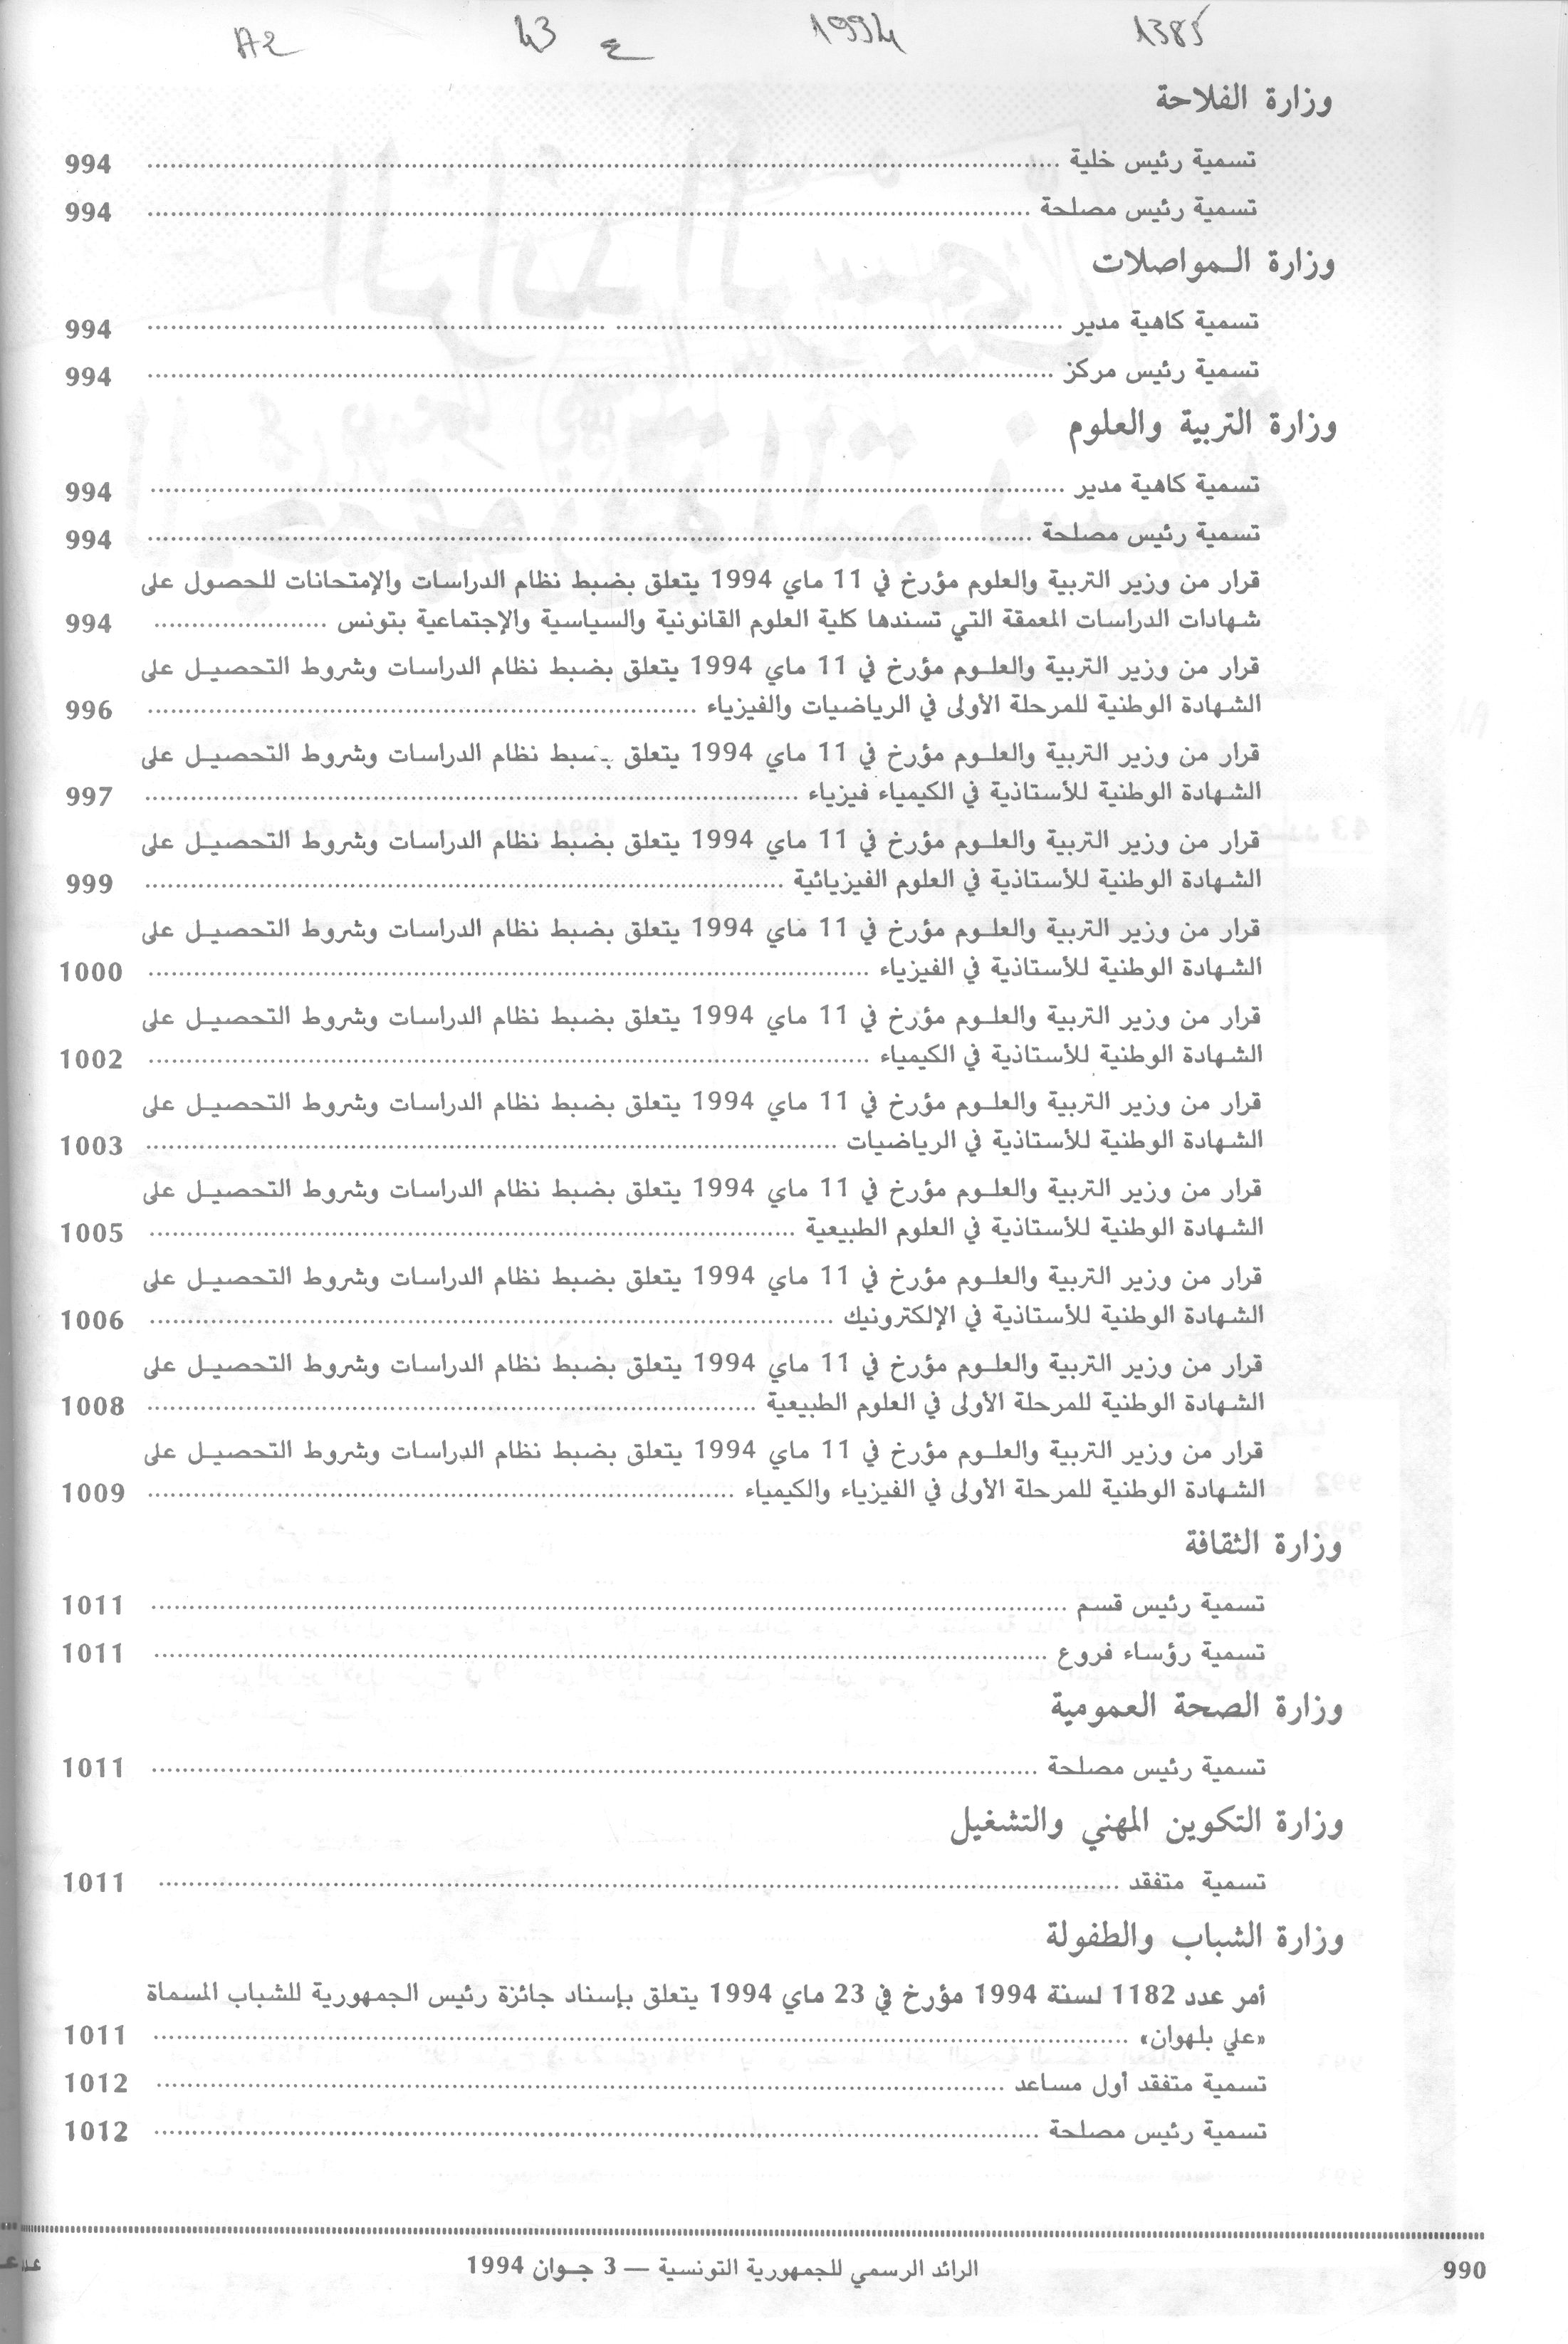 1385 1994 ع 43 A2
وزارة الفلاحة
تسمية رئيس خلية ........ 994
تسمية رئيس مصلحة ........ 994
وزارة المواصلات
تسمية كاهية مدير ........ 994
تسمية رئيس مركز ........ 994
وزارة التربية والعلوم
تسمية كاهية مدير ........ 994
تسمية رئيس مصلحة ........ 994
قرار من وزير التربية والعلوم مؤرخ في 11 ماي 1994 يتعلق بضبط نظام الدراسات والإمتحانات للحصول على
شهادات الدراسات المعمقة التي تسندها كلية العلوم القانونية والسياسية والإجتماعية بتونس ........ 994
قرار من وزير التربية والعلوم مؤرخ في 11 ماي 1994 يتعلق بضبط نظام الدراسات وشروط التحصيل على
الشهادة الوطنية للمرحلة الأولى في الرياضيات والفيزياء ........ 996
قرار من وزير التربية والعلوم مؤرخ في 11 ماي 1994 يتعلق بضبط نظام الدراسات وشروط التحصيل على
الشهادة الوطنية للأستاذية في الكيمياء فيزياء ........ 997
قرار من وزير التربية والعلوم مؤرخ في 11 ماي 1994 يتعلق بضبط نظام الدراسات وشروط التحصيل على
الشهادة الوطنية للأستاذية في العلوم الفيزيائية ........ 999
قرار من وزير التربية والعلوم مؤرخ في 11 ماي 1994 يتعلق بضبط نظام الدراسات وشروط التحصيل على
الشهادة الوطنية للأستاذية في الفيزياء ........ 1000
قرار من وزير التربية والعلوم مؤرخ في 11 ماي 1994 يتعلق بضبط نظام الدراسات وشروط التحصيل على
الشهادة الوطنية للأستاذية في الكيمياء ........ 1002
قرار من وزير التربية والعلوم مؤرخ في 11 ماي 1994 يتعلق بضبط نظام الدراسات وشروط التحصيل على
الشهادة الوطنية للأستاذية في الرياضيات ........ 1003
قرار من وزير التربية والعلوم مؤرخ في 11 ماي 1994 يتعلق بضبط نظام الدراسات وشروط التحصيل على
الشهادة الوطنية للأستاذية في العلوم الطبيعية ........ 1005
قرار من وزير التربية والعلوم مؤرخ في 11 ماي 1994 يتعلق بضبط نظام الدراسات وشروط التحصيل على
الشهادة الوطنية للأستاذية في الإلكترونيك ........ 1006
قرار من وزير التربية والعلوم مؤرخ في 11 ماي 1994 يتعلق بضبط نظام الدراسات وشروط التحصيل على
الشهادة الوطنية للمرحلة الأولى في العلوم الطبيعية ........ 1008
قرار من وزير التربية والعلوم مؤرخ في 11 ماي 1994 يتعلق بضبط نظام الدراسات وشروط التحصيل على
الشهادة الوطنية للمرحلة الأولى في الفيزياء والكيمياء ........ 1009
وزارة الثقافة
تسمية رئيس قسم ........ 1011
تسمية رؤساء فروع ........ 1011
وزارة الصحة العمومية
تسمية رئيس مصلحة ........ 1011
وزارة التكوين المهني والتشغيل
تسمية متفقد ........ 1011
وزارة الشباب والطفولة
أمر عدد 1182 لسنة 1994 مؤرخ في 23 ماي 1994 يتعلق بإسناد جائزة رئيس الجمهورية للشباب المسماة
«علي بلهوان» ........ 1011
تسمية متفقد أول مساعد ........ 1012
تسمية رئيس مصلحة ........ 1012
990 الرائد الرسمي للجمهورية التونسية — 3 جوان 1994